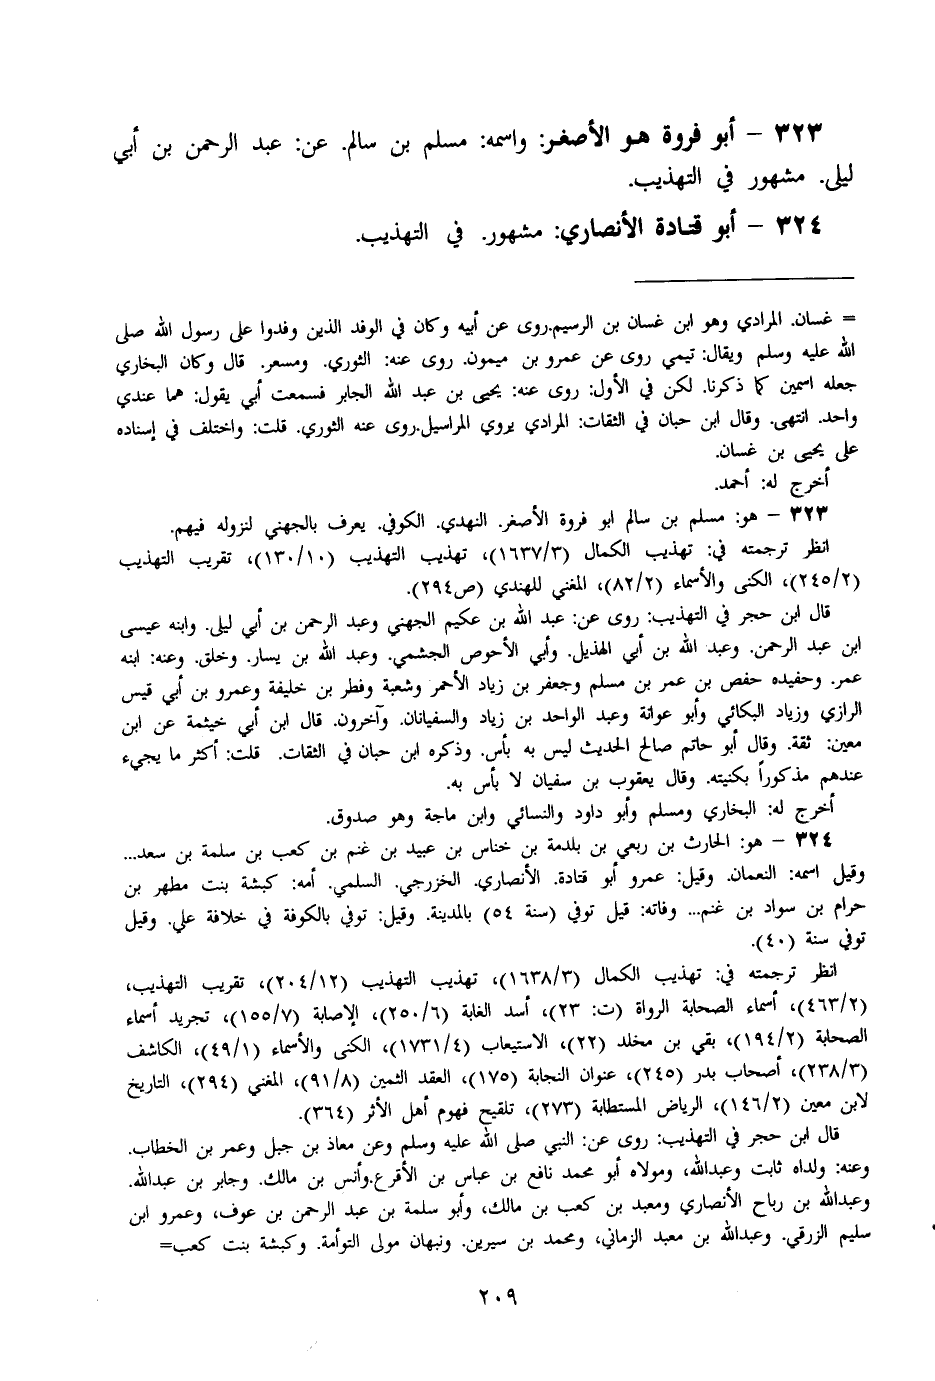 ٣٢٣ – أبو فروة هو الأصغر: واسمه: مسلم بن سالم. عن: عبد الرحمن بن أبي
ليلى. مشهور في التهذيب.
٣٢٤ – أبو قتادة الأنصاري: مشهور. في التهذيب.
= غسان. المرادي وهو ابن غسان بن الرسيم.روى عن أبيه وكان في الوفد الذين وفدوا على رسول الله صلى
الله عليه وسلم ويقال: تيمي روى عن عمرو بن ميمون. روى عنه: الثوري. ومسعر. قال وكان البخاري
جعله اسمين كما ذكرنا. لكن في الأول: روى عنه: يحيى بن عبد الله الجابر فسمعت أبي يقول: هما عندي
واحد. انتهى. وقال ابن حبان في الثقات: المرادي يروي المراسيل.روى عنه الثوري. قلت: واختلف في إسناده
على يحيى بن غسان.
أخرج له: أحمد.
٣٢٣ – هو: مسلم بن سالم ابو فروة الأصغر. النهدي. الكوفي. يعرف بالجهني لنزوله فيهم.
انظر ترجمته في: تهذيب الكمال (١٦٣٧/٣)، تهذيب التهذيب (١٣٠/١٠)، تقريب التهذيب
(٢٤٥/٢)، الكنى والأسماء (٨٢/٢)، المغني للهندي (ص٢٩٤).
قال ابن حجر في التهذيب: روى عن: عبد الله بن عكيم الجهني وعبد الرحمن بن أبي ليلى. وابنه عيسى
ابن عبد الرحمن. وعبد الله بن أبي الهذيل. وأبي الأحوص الجشمي. وعبد الله بن يسار. وخلق. وعنه: ابنه
عمر. وحفيده حفص بن عمر بن مسلم وجعفر بن زياد الأحمر وشعبة وفطر بن خليفة وعمرو بن أبي قيس
الرازي وزياد البكائي وأبو عوانة وعبد الواحد بن زياد والسفيانان. وآخرون. قال ابن أبي خيثمة عن ابن
معين: ثقة. وقال أبو حاتم صالح الحديث ليس به بأس. وذكره ابن حبان في الثقات. قلت: أكثر ما يجيء
عندهم مذكوراً بكنيته. وقال يعقوب بن سفيان لا بأس به.
أخرج له: البخاري ومسلم وأبو داود والنسائي وابن ماجة وهو صدوق.
٣٢٤ – هو: الحارث بن ربعي بن بلدمة بن خناس بن عبيد بن غنم بن كعب بن سلمة بن سعد...
وقيل اسمه: النعمان. وقيل: عمرو أبو قتادة. الأنصاري. الخزرجي. السلمي. أمه: كبشة بنت مطهر بن
حرام بن سواد بن غنم... وفاته: قيل توفي (سنة ٥٤) بالمدينة. وقيل: توفي بالكوفة في خلافة علي. وقيل
توفي سنة (٤٠).
انظر ترجمته في: تهذيب الكمال (١٦٣٨/٣)، تهذيب التهذيب (٢٠٤/١٢)، تقريب التهذيب،
(٤٦٣/٢)، أسماء الصحابة الرواة (ت: ٢٣)، أسد الغابة (٢٥٠/٦)، الإصابة (١٥٥/٧)، تجريد أسماء
الصحابة (١٩٤/٢)، بقي بن مخلد (٢٢)، الاستيعاب (١٧٣١/٤)، الكنى والأسماء (٤٩/١)، الكاشف
(٢٣٨/٣)، أصحاب بدر (٢٤٥)، عنوان النجابة (١٧٥)، العقد الثمين (٩١/٨)، المغني (٢٩٤)، التاريخ
لابن معين (١٤٦/٢)، الرياض المستطابة (٢٧٣)، تلقيح فهوم أهل الأثر (٣٦٤).
قال ابن حجر في التهذيب: روى عن: النبي صلى الله عليه وسلم وعن معاذ بن جبل وعمر بن الخطاب.
وعنه: ولداه ثابت وعبدالله، ومولاه أبو محمد نافع بن عباس بن الأقرع.وأنس بن مالك. وجابر بن عبدالله.
وعبدالله بن رباح الأنصاري ومعبد بن كعب بن مالك، وأبو سلمة بن عبد الرحمن بن عوف، وعمرو ابن
سليم الزرقي. وعبدالله بن معبد الزماني، ومحمد بن سيرين. ونبهان مولى التوأمة. وكبشة بنت كعب=
٢٠٩